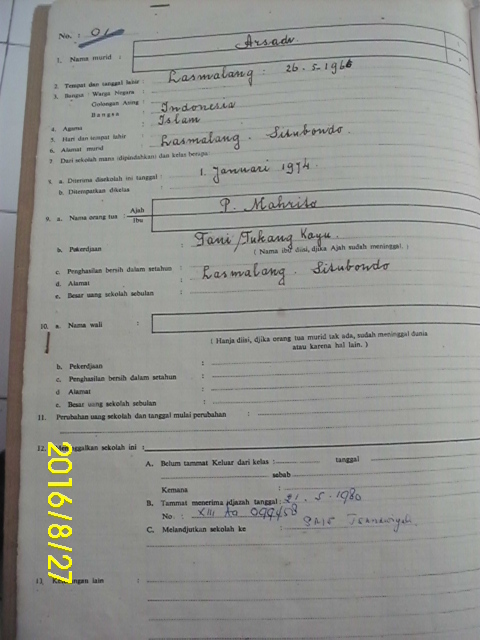 No. : 01
1. Nama murid : Arsadi
2. Tempat dan tanggal lahir : Lasmalang . 26.5-1966
3. Bangsa : Warga Negara :
Golongan Asing : Indonesia
Bangsa
4. Agama : Islam
5. Hari dan tempat lahir :
6. Alamat murid : Lasmalang . Situbondo.
7. Dari sekolah mana (dipindahkan) dan kelas berapa
8. a. Diterima disekolah ini tanggal : 1. Januari 1974
b. Ditempatkan dikelas :
9. a. Nama orang tua : Ajah / Ibu P. Mahrito
b. Pekerdjaan : Tani/Tukang Kayu.
( Nama ibu diisi, djika Ajah sudah meninggal. )
c. Penghasilan bersih dalam setahun :
d. Alamat : Lasmalang . Situbondo
e. Besar uang sekolah sebulan :
10. a. Nama wali :
( Hanja diisi, djika orang tua murid tak ada, sudah meninggal dunia
atau karena hal lain. )
b. Pekerdjaan :
c. Penghasilan bersih dalam setahun :
d Alamat :
e. Besar uang sekolah sebulan :
11. Perubahan uang sekolah dan tanggal mulai perubahan :
12. Meninggalkan sekolah ini :
A. Belum tammat Keluar dari kelas : tanggal
sebab
Kemana :
B. Tammat menerima idjazah tanggal : 21 . 5 . 1980
No. : XIII Aa 099458
C. Melandjutkan sekolah ke :
13. Keterangan lain :
2016/8/27